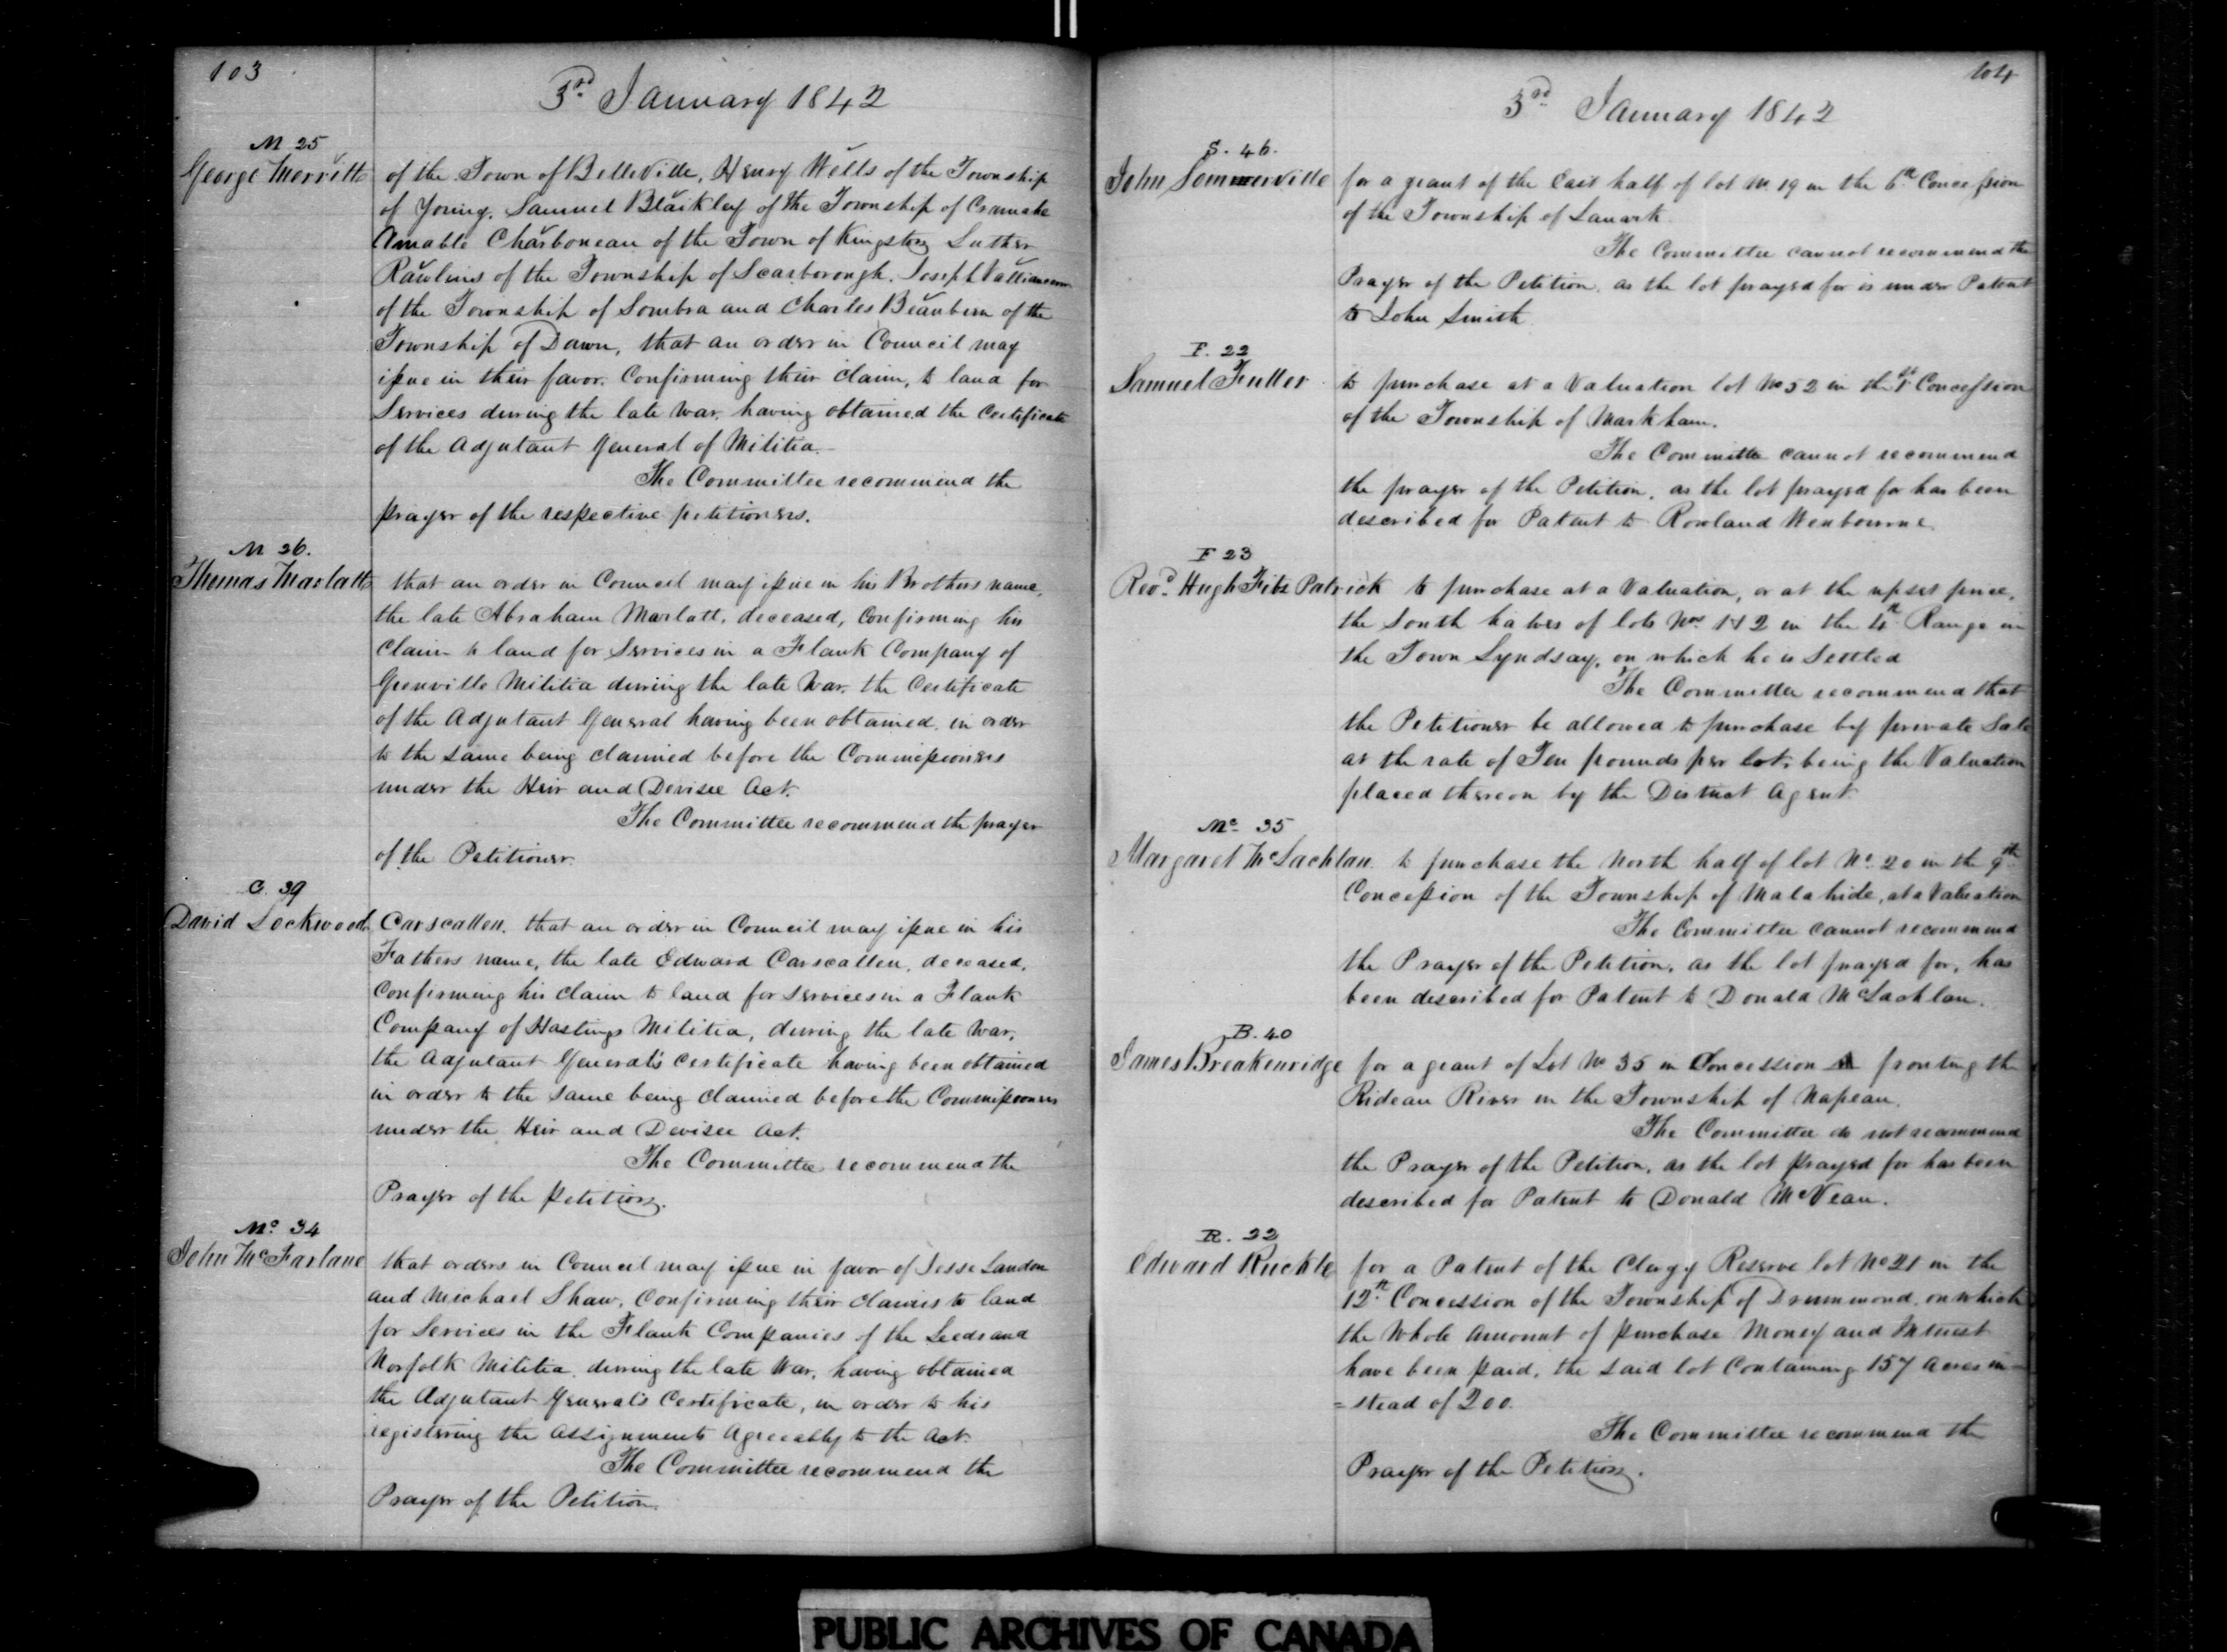 103
3rd January 1842
M 25
George Merritt of the Town of Belleville, Henry Wells of the Township
of Young, Samuel Blaikley of the Township of Cramahe
Amable Charboneau of the Town of Kingston Luther
Rawlins of the Township of Scarborough. Joseph
of the Township of Sombra and Charles Beaubern of the
Township of Dawn, that an order in Council may
issue in their favor. Confirming their claim, to land for
Services during the late war, having obtained the Certificate
of the Adjutant General of Militia.
The Committee recommend the
prayer of the respective petitioners.
M 26.
Thomas Marlatt that an order in Council may issue in his Brothers name,
the late Abraham Marlatt, deceased, Confirming his
Claim to land for Services in a Flank Company of
Grenville Militia during the late War. the Certificate
of the Adjutant General having been obtained in order
to the same being claimed before the Commissioners
under the Heir and Devisee Act.
The Committee recommend the prayer
of the Petitioner.
C. 39
David Lockwood Carscallen, that an order in Council may issue in his
Fathers name, the late Edward Carscallen, deceased,
Confirming his claim to land for services in a Flank
Company of Hastings Militia, during the late War,
the Adjutant General's Certificate having been obtained
in order to the same being claimed before the Commissioners
under the Heir and Devisee Act.
The Committee recommend the
Prayer of the petition.
Mc 34
John McFarlane that orders in Council may issue in favor of Jesse Landon
and Michael Shaw, Confirming their claims to land
for Services in the Flank Companies of the Leeds and
Norfolk Militia during the late War, having obtained
the Adjutant General's Certificate, in order to his
registering the Assignments Agreeably to the Act.
The Committee recommend the
Prayer of the Petition.
104
3rd January 1842
S. 46.
John Sommerville for a grant of the East half of lot No 19 in the 6th Concession
of the Township of Lanark.
The Committee cannot recommend the
Prayer of the Petition, as the lot prayed for is under Patent
to John Smith
F. 22
Samuel Fuller to purchase at a Valuation lot No 52 in the 1st Concession
of the Township of Markham.
The Committee cannot recommend
the prayer of the Petition, as the lot prayed for has been
described for Patent to Rowland Wenbourne
F 23
Revd. Hugh Fitz Patrick to purchase at a Valuation, or at the upset price,
the South halves of lots Nos 1 & 2 in the 4th Range in
the Town Lyndsay, on which he is Settled
The Committee recommend that
the Petitioner be allowed to purchase by private Sale
at the rate of Ten pounds per lot, being the Valuation
placed thereon by the District Agent.
Mc 35
Margaret McLachlan to purchase the North half of lot No 20 in the 9th
Concession of the Township of Malahide, at a Valuation
The Committee cannot recommend
the Prayer of the Petition, as the lot prayed for, has
been described for Patent to Donald McLachlan.
B. 40
James Breakenridge for a grant of Lot No 35 in Concession A fronting the
Rideau River in the Township of Napean.
The Committee do not recommend
the Prayer of the Petition, as the lot prayed for has been
described for Patent to Donald McVean.
R. 22
Edward Ruckle for a Patent of the Clergy Reserve lot No 21 in the
12th Concession of the Township of Drummond, on which
the Whole Amount of purchase Money and Interest
have been paid, the said lot Containing 157 Acres in=
=stead of 200.
The Committee recommend the
Prayer of the Petition.
PUBLIC ARCHIVES OF CANADA